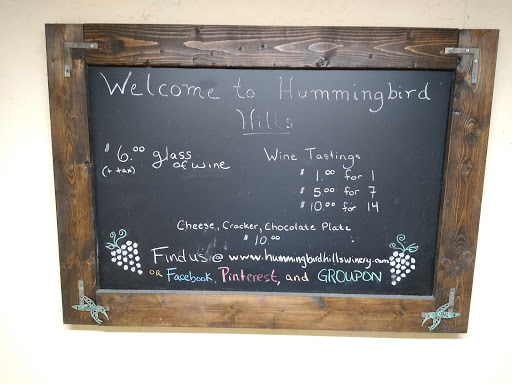 Welcome to Hummingbird
Hills
$ 6.00 glass
of wine
(+ tax)
Wine Tastings
$ 1.00 for 1
$ 5.00 for 7
$ 10.00 for 14
Cheese, Cracker, Chocolate Plate
$ 10.00
Find us @ www.hummingbirdhillswinery.com
OR Facebook, Pinterest, and GROUPON